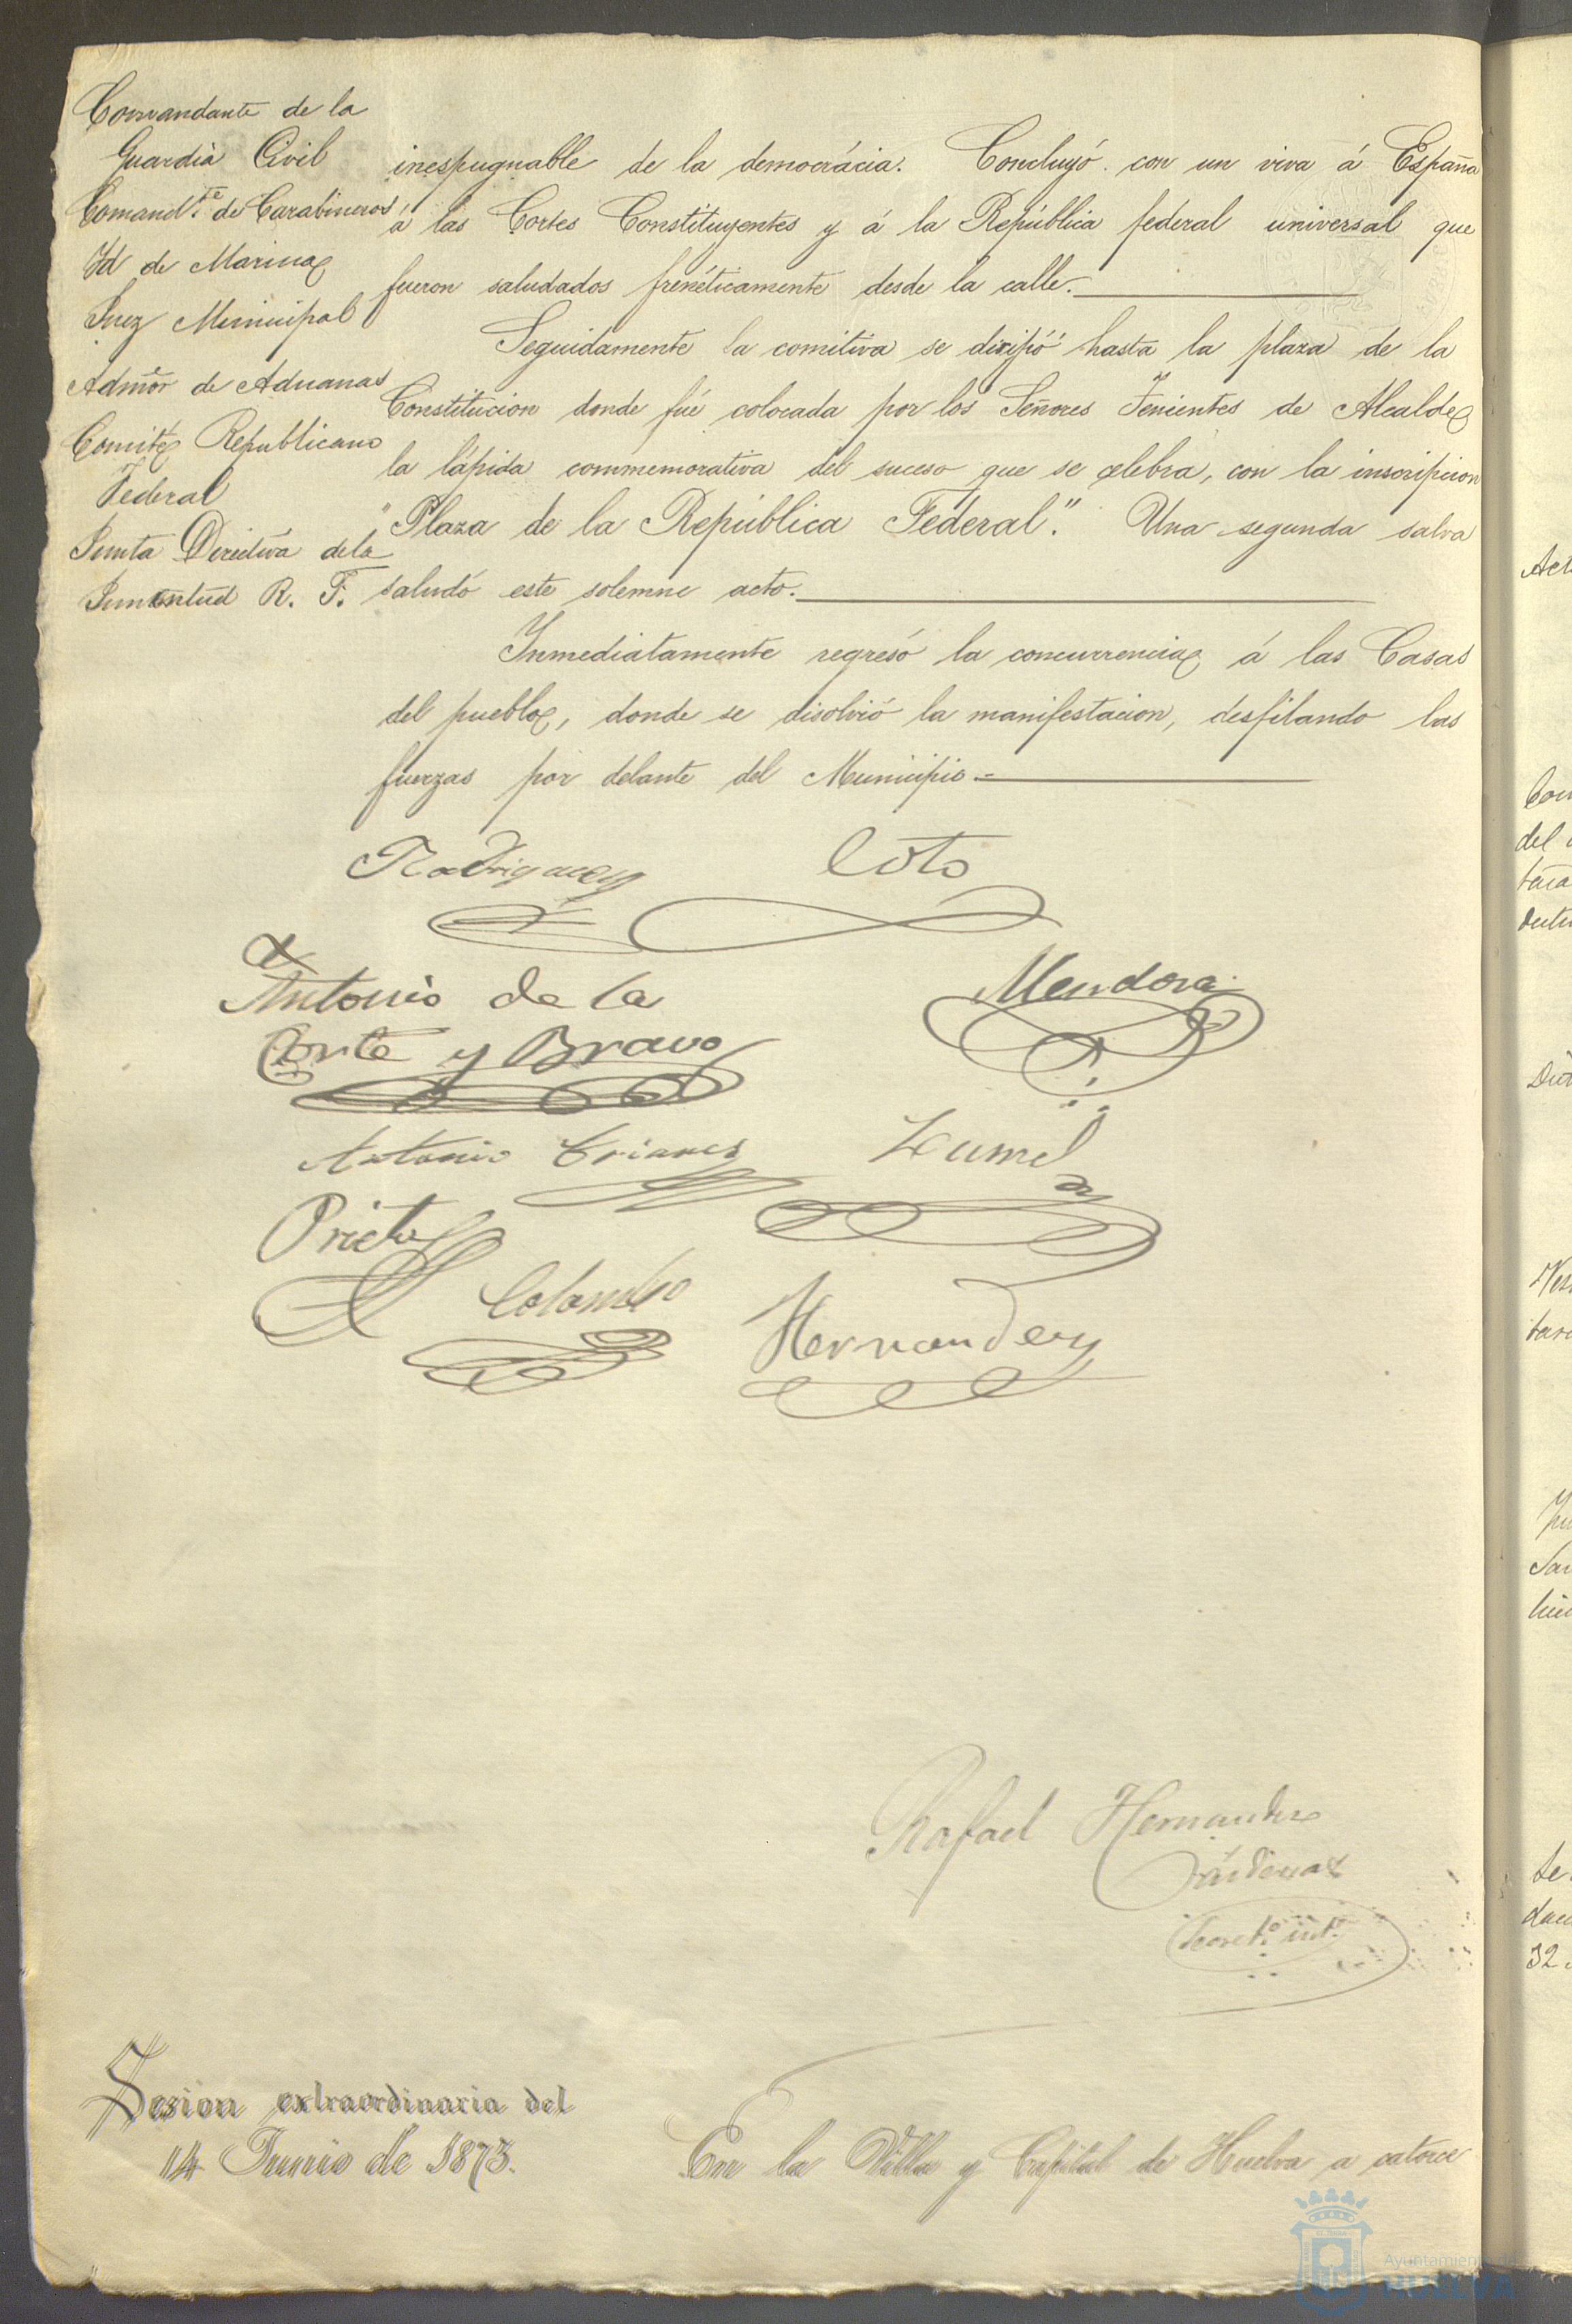 Comandante de la
Guardia Civil
Comandte. de Carabineros
Id de Marina
Juez Municipal
Admor de Aduanas
Comite Republicano
Federal
Junta Directiva de la
Juventud R. F.
inespugnable de la democrácia. Concluyó con un viva á España
á las Cortes Constituyentes y á la República federal universal que
fueron saludados frenéticamente desde la calle.
Seguidamente la comitiva se dirijió hasta la plaza de la
Constitucion donde fué colocada por los Señores Tenientes de Alcalde
la lápida commemorativa del suceso que se celebra, con la inscripcion
"Plaza de la República Federal". Una segunda salva
saludó este solemne acto.
Inmediatamente regresó la concurrencia á las Casas
del pueblo, donde se disolvió la manifestacion, desfilando las
fuerzas por delante del Municipio.-
Rodriguez Coto
Antonio de la
Corte y Bravo
Mendoza
Antonio
Prieto
Colombo
Hernandez
Rafael Hernandez
Cárdenas
Secreto. int.
Sesion extraordinaria del
14 Junio de 1873.
En la Villa y Capital de Huelva a catorce
Ayuntamiento de
HUELVA